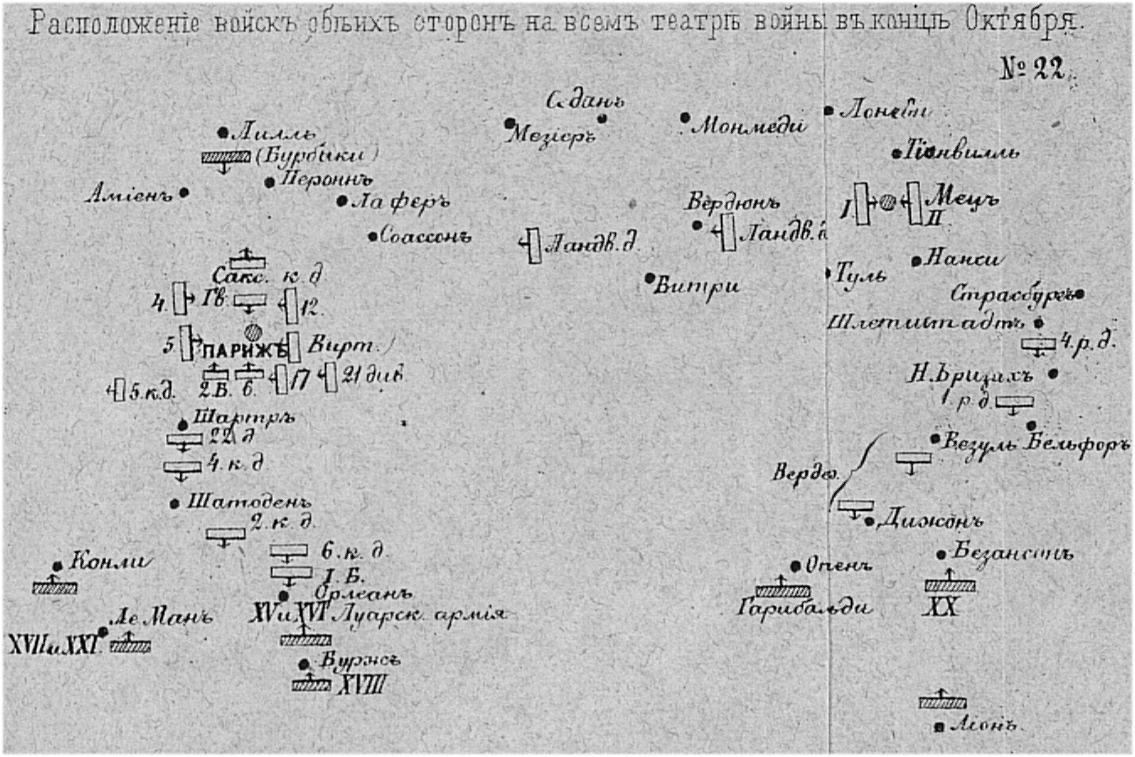 Расположеніе войскъ обѣихъ сторонъ на всемъ театрѣ войны въ концѣ Октября.
№ 22.
Седанъ
Лилль
Мезіеръ
Монмеди
(Бурбаки)
Тіонвилль
Пероннъ
Аміенъ
Ла феръ
Вердюнъ
I
Мецъ
II
Соассонъ
Ландв. д.
Ландв. д
Нанси
Сакс. к д
Туль
Витри
Страсбургъ
4.
Гв.
12.
Шлетштадтъ
5.
ПАРИЖЪ
Вирт.)
4. р. д.
5. к.д.
2.Б.
6.
17
21 див
Н.Бризахъ
1. р. д.
Шартръ
22 д
Везуль
Бельфоръ
4. к. д
Верде.
Шатоденъ
2. к. д.
Дижонъ
6. к. д
Безансонъ
Конли
Опенъ
I. Б.
Орлеанъ
Гарибальди
XX
Ле Манъ
XV и XVI Луарск. армія
XVII и XXI.
Буржъ
XVIII
Ліонъ.